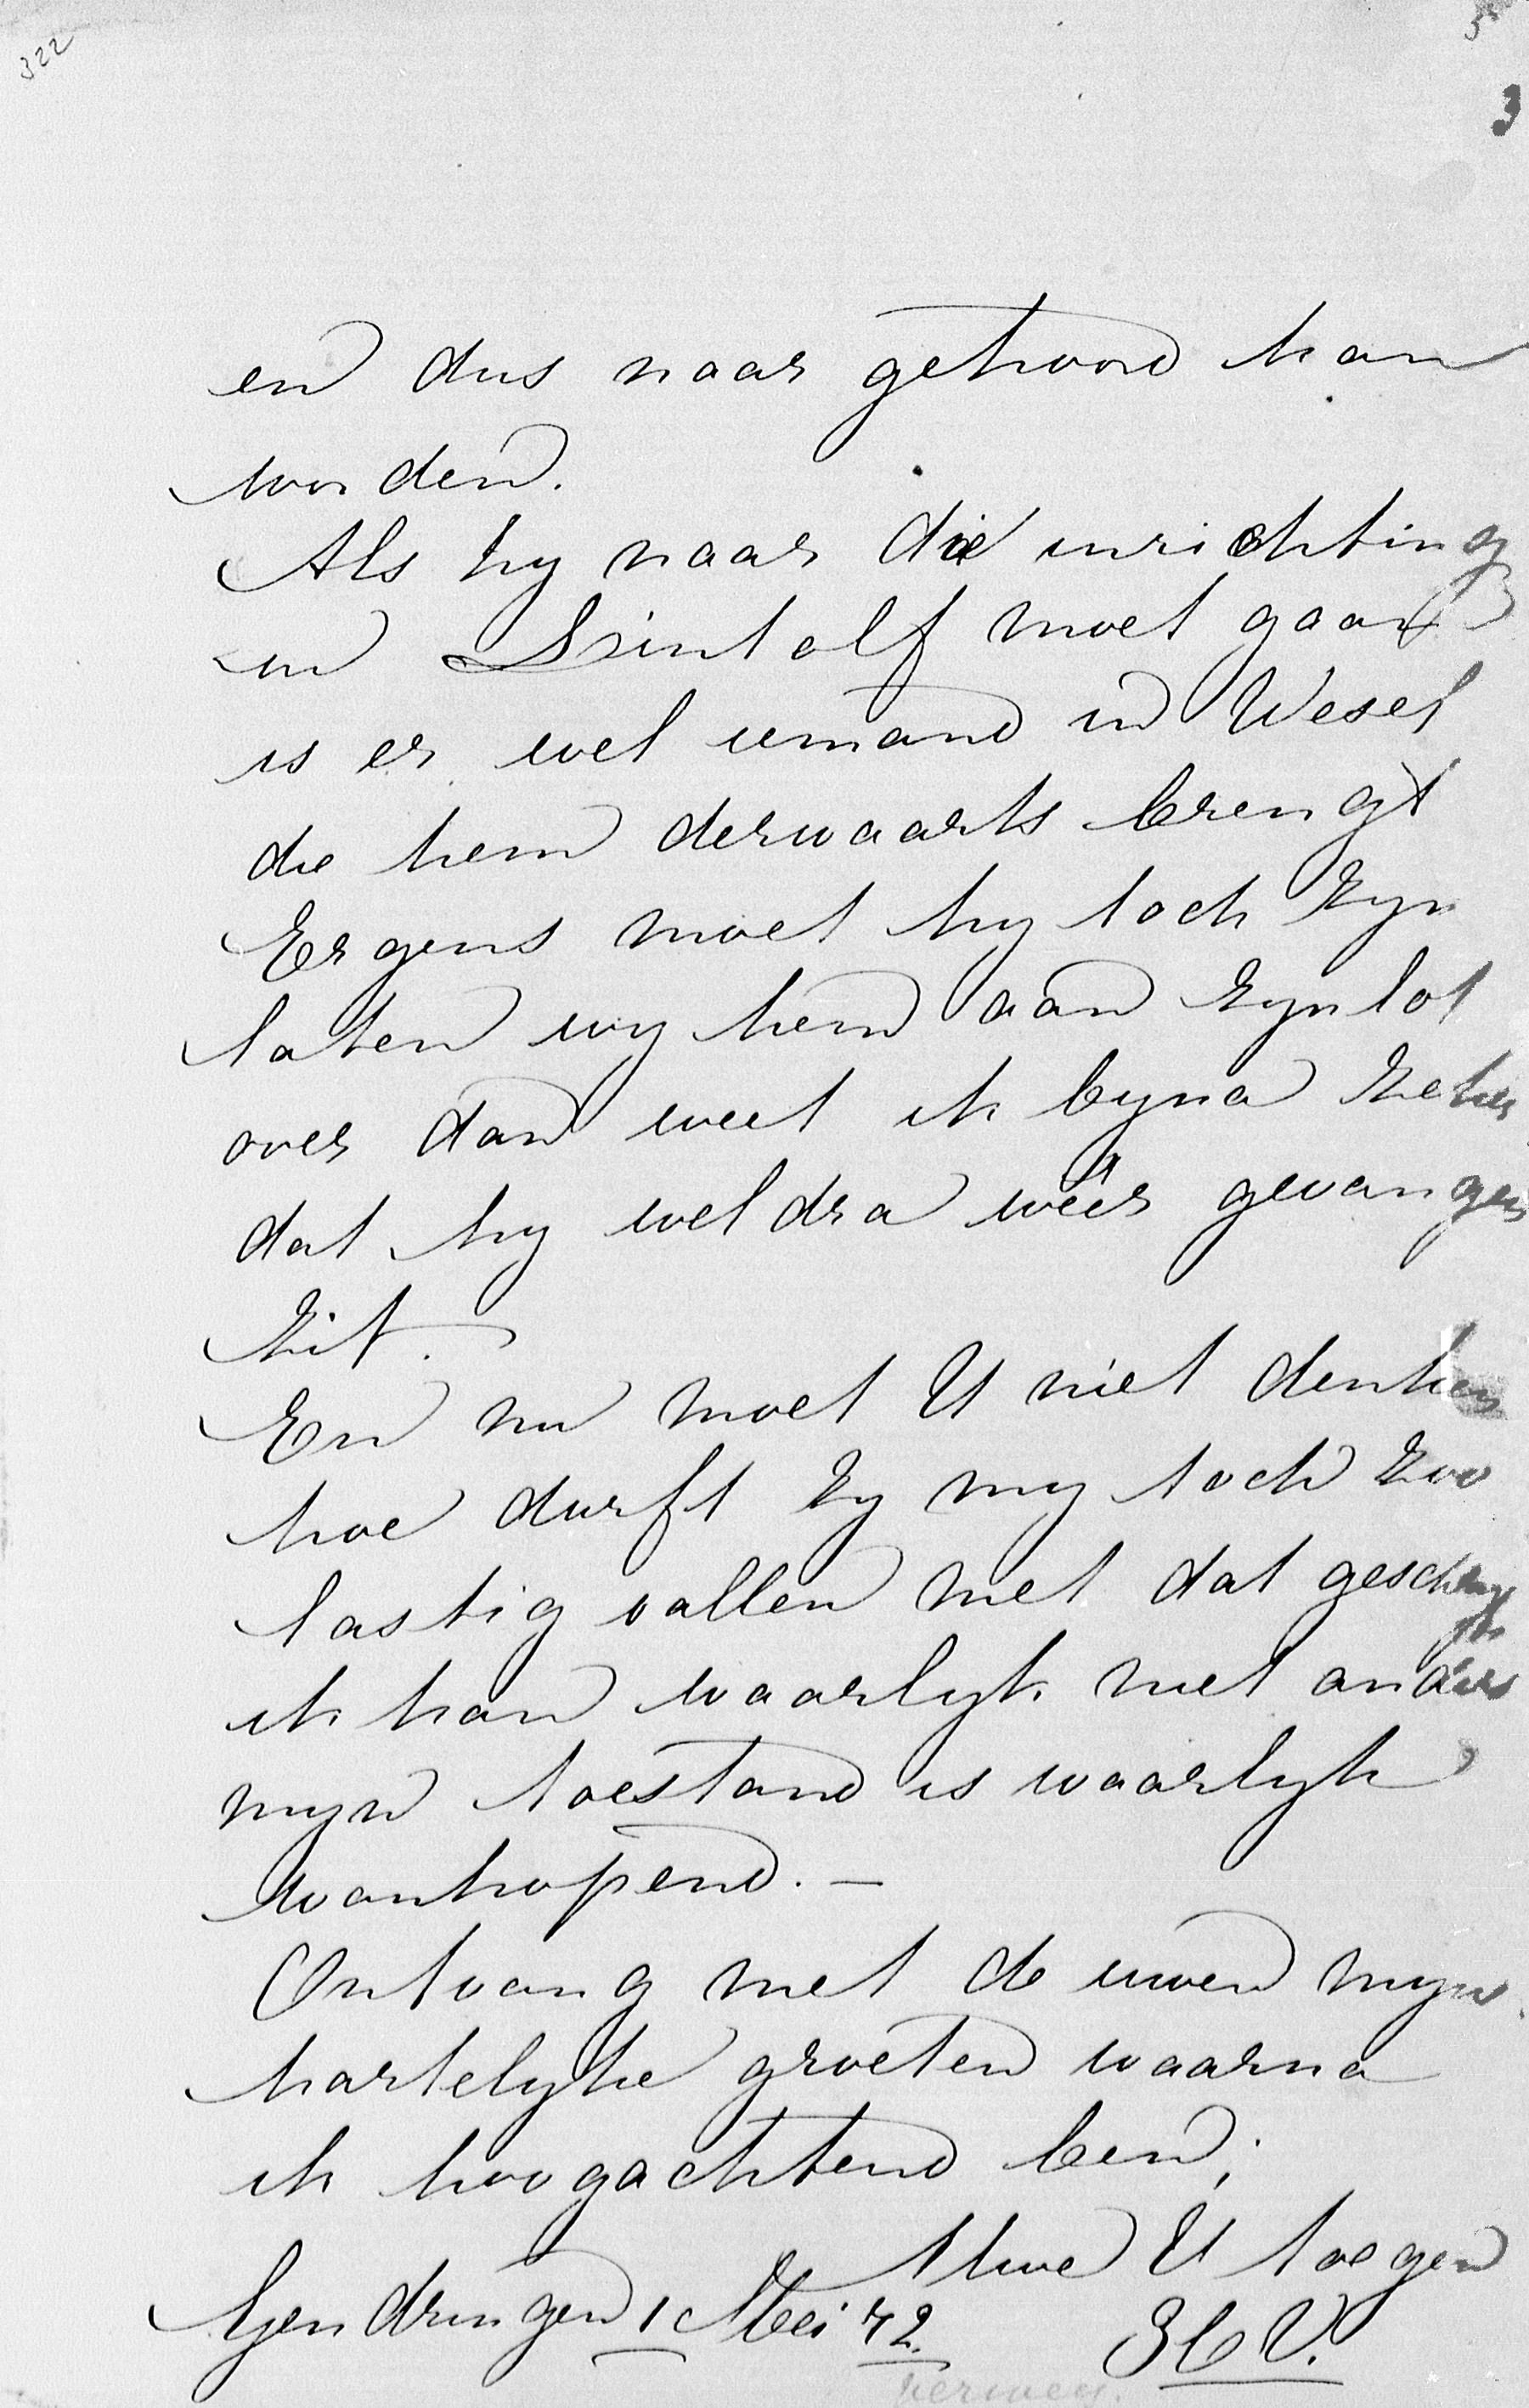 322
5
3
en dus naar gehoord kan
worden.
Als hy naar die inrichting
in Lintolf moet gaan
is er wel iemand in Wesel
die hem derwaarts brengt
Ergens moet hy toch zyn
laten wy hem aan zyn lot
over dan weet ik byna zeker
dat hy weldra weêr gevangen
zit.
En nu moet U niet denken
hoe durft zy my toch zoo
lastig vallen met dat
ik kan waarlyk niet anders
myn toestand is waarlyk
wanhopend. —
Ontvang met de uwen myn
hartelyke groeten waarna
ik hoogachtend ben,
Uwe U toegen
Gendringen 1 Mei 72. H V.
Verwey.